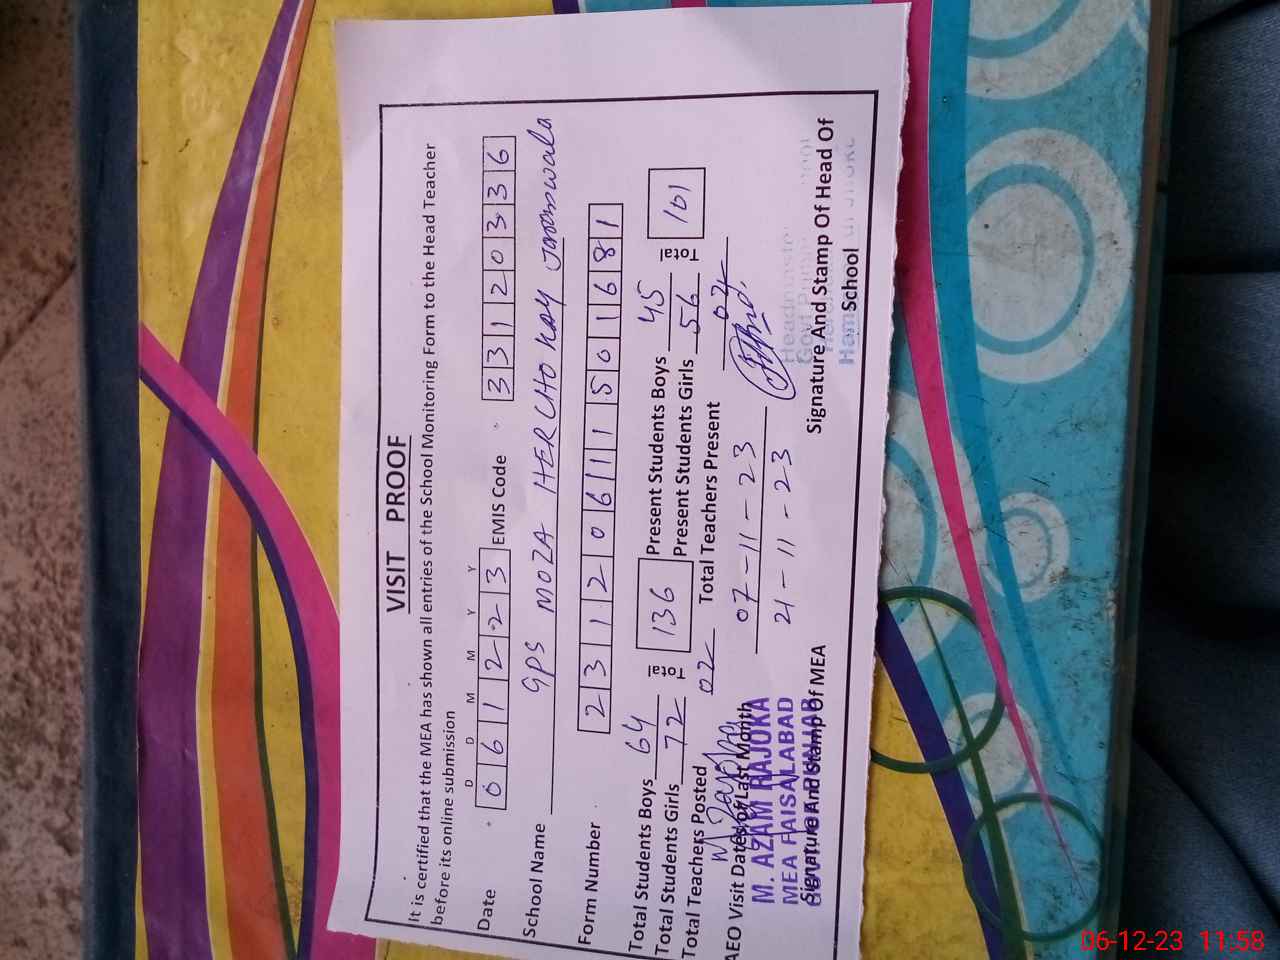 VISIT PROOF
It is certified that the MEA has shown all entries of the School Monitoring Form to the Head Teacher
before its online submission
D D M M Y Y
Date 0 6 1 2 2 3 EMIS Code 3 3 1 2 0 3 3 6
School Name GPS MOZA HERCHO KAY
Form Number 2 3 1 2 0 6 1 1 1 5 0 1 6 8 1
Total Students Boys 64 Total 136 Present Students Boys 45 Total 101
Total Students Girls 72 Present Students Girls 56
Total Teachers Posted 02 Total Teachers Present 02
AEO Visit Dates of Last Month 07-11-23
21-11-23
M. AZAM RAJOKA
MEA FAISALABAD
Signature And Stamp Of MEA
Signature And Stamp Of Head Of
School
06-12-23 11:58